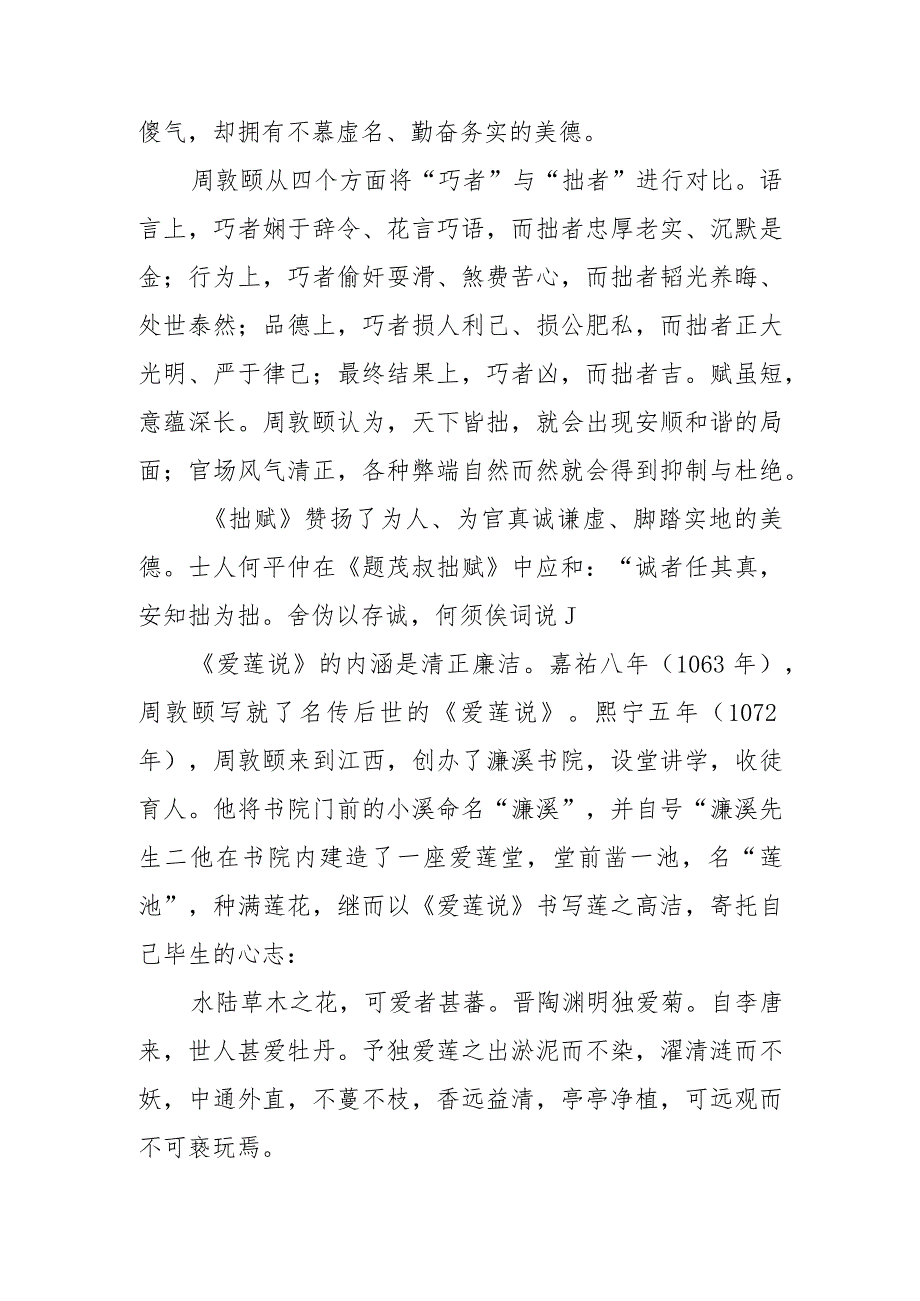 傻气，却拥有不慕虚名、勤奋务实的美德。
周敦颐从四个方面将“巧者”与“拙者”进行对比。语
言上，巧者娴于辞令、花言巧语，而拙者忠厚老实、沉默是
金；行为上，巧者偷奸耍滑、煞费苦心，而拙者韬光养晦、
处世泰然；品德上，巧者损人利己、损公肥私，而拙者正大
光明、严于律己；最终结果上，巧者凶，而拙者吉。赋虽短，
意蕴深长。周敦颐认为，天下皆拙，就会出现安顺和谐的局
面；官场风气清正，各种弊端自然而然就会得到抑制与杜绝。
《拙赋》赞扬了为人、为官真诚谦虚、脚踏实地的美
德。士人何平仲在《题茂叔拙赋》中应和：“诚者任其真，
安知拙为拙。舍伪以存诚，何须俟词说J
《爱莲说》的内涵是清正廉洁。嘉祐八年（1063 年），
周敦颐写就了名传后世的《爱莲说》。熙宁五年（1072
年），周敦颐来到江西，创办了濂溪书院，设堂讲学，收徒
育人。他将书院门前的小溪命名“濂溪”，并自号“濂溪先
生二他在书院内建造了一座爱莲堂，堂前凿一池，名“莲
池”，种满莲花，继而以《爱莲说》书写莲之高洁，寄托自
己毕生的心志：
水陆草木之花，可爱者甚蕃。晋陶渊明独爱菊。自李唐
来，世人甚爱牡丹。予独爱莲之出淤泥而不染，濯清涟而不
妖，中通外直，不蔓不枝，香远益清，亭亭净植，可远观而
不可亵玩焉。